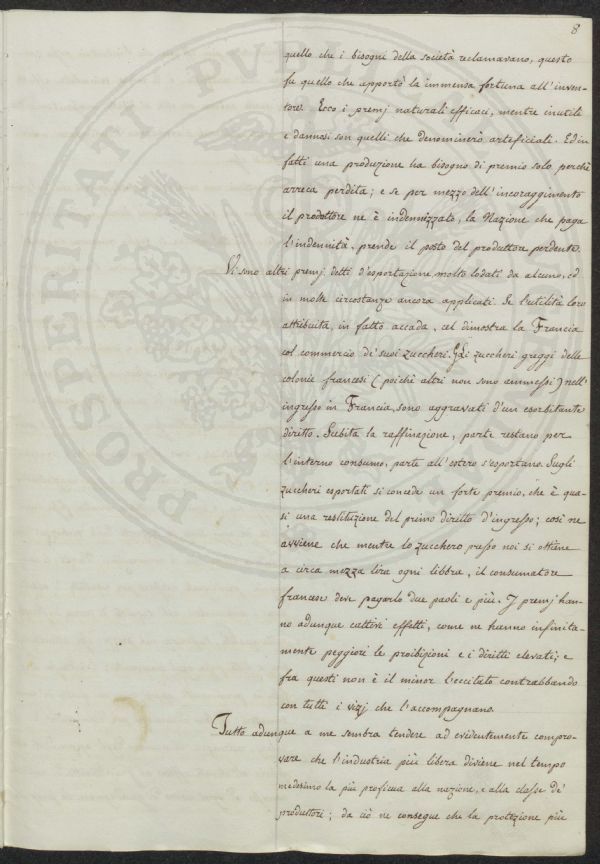 8
quello che i bisogni della società reclamavano, questo
fu quello che apportò la immensa fortuna all'inven-
tore. Ecco i premj naturali efficaci, mentre inutili
e dannosi son quelli che denominerò arteficiali. Ed in
fatti una produzione ha bisogno di premio solo perchè
arreca perdita; e se per mezzo dell'incoraggimento
il produttore ne è indennizzato, la Nazione che paga
l'indennità, prende il posto del produttore perdente.
Vi sono altri premj detti d'esportazione molto lodati da alcuno, ed
in molte circostanze ancora applicati. Se l'utilità loro
attribuita, in fatto accada, cel dimostra la Francia
col commercio di suoi zuccheri. Gli zuccheri greggi delle
colonie francesi (poichè altri non sono ammessi) nell'
ingresso in Francia, sono aggravati d'un esorbitante
diritto. Subita la raffinazione, parte restano per
l'interno consumo, parte all'estero s'esportano. Sugli
zuccheri esportati si concede un forte premio, che è qua-
si una restituzione del primo diritto d'ingresso; così ne
avviene che mentre lo zucchero presso noi si ottiene
a circa mezza lira ogni libbra, il consumatore
francese deve pagarlo due paoli e più. I premj han-
no adunque cattivi effetti, come ne hanno infinita-
mente peggiori le proibizioni e i diritti elevati; e
fra questi non è il minor l'eccitato contrabbando
con tutti i vizj che l'accompagnano.
Tutto adunque a me sembra tendere ad evidentemente compro-
vare che l'industria più libera diviene nel tempo
medesimo la più proficua alla nazione, e alla classe de'
produttori; da ciò ne consegue che la protezione più
PROSPERITATI PVBL